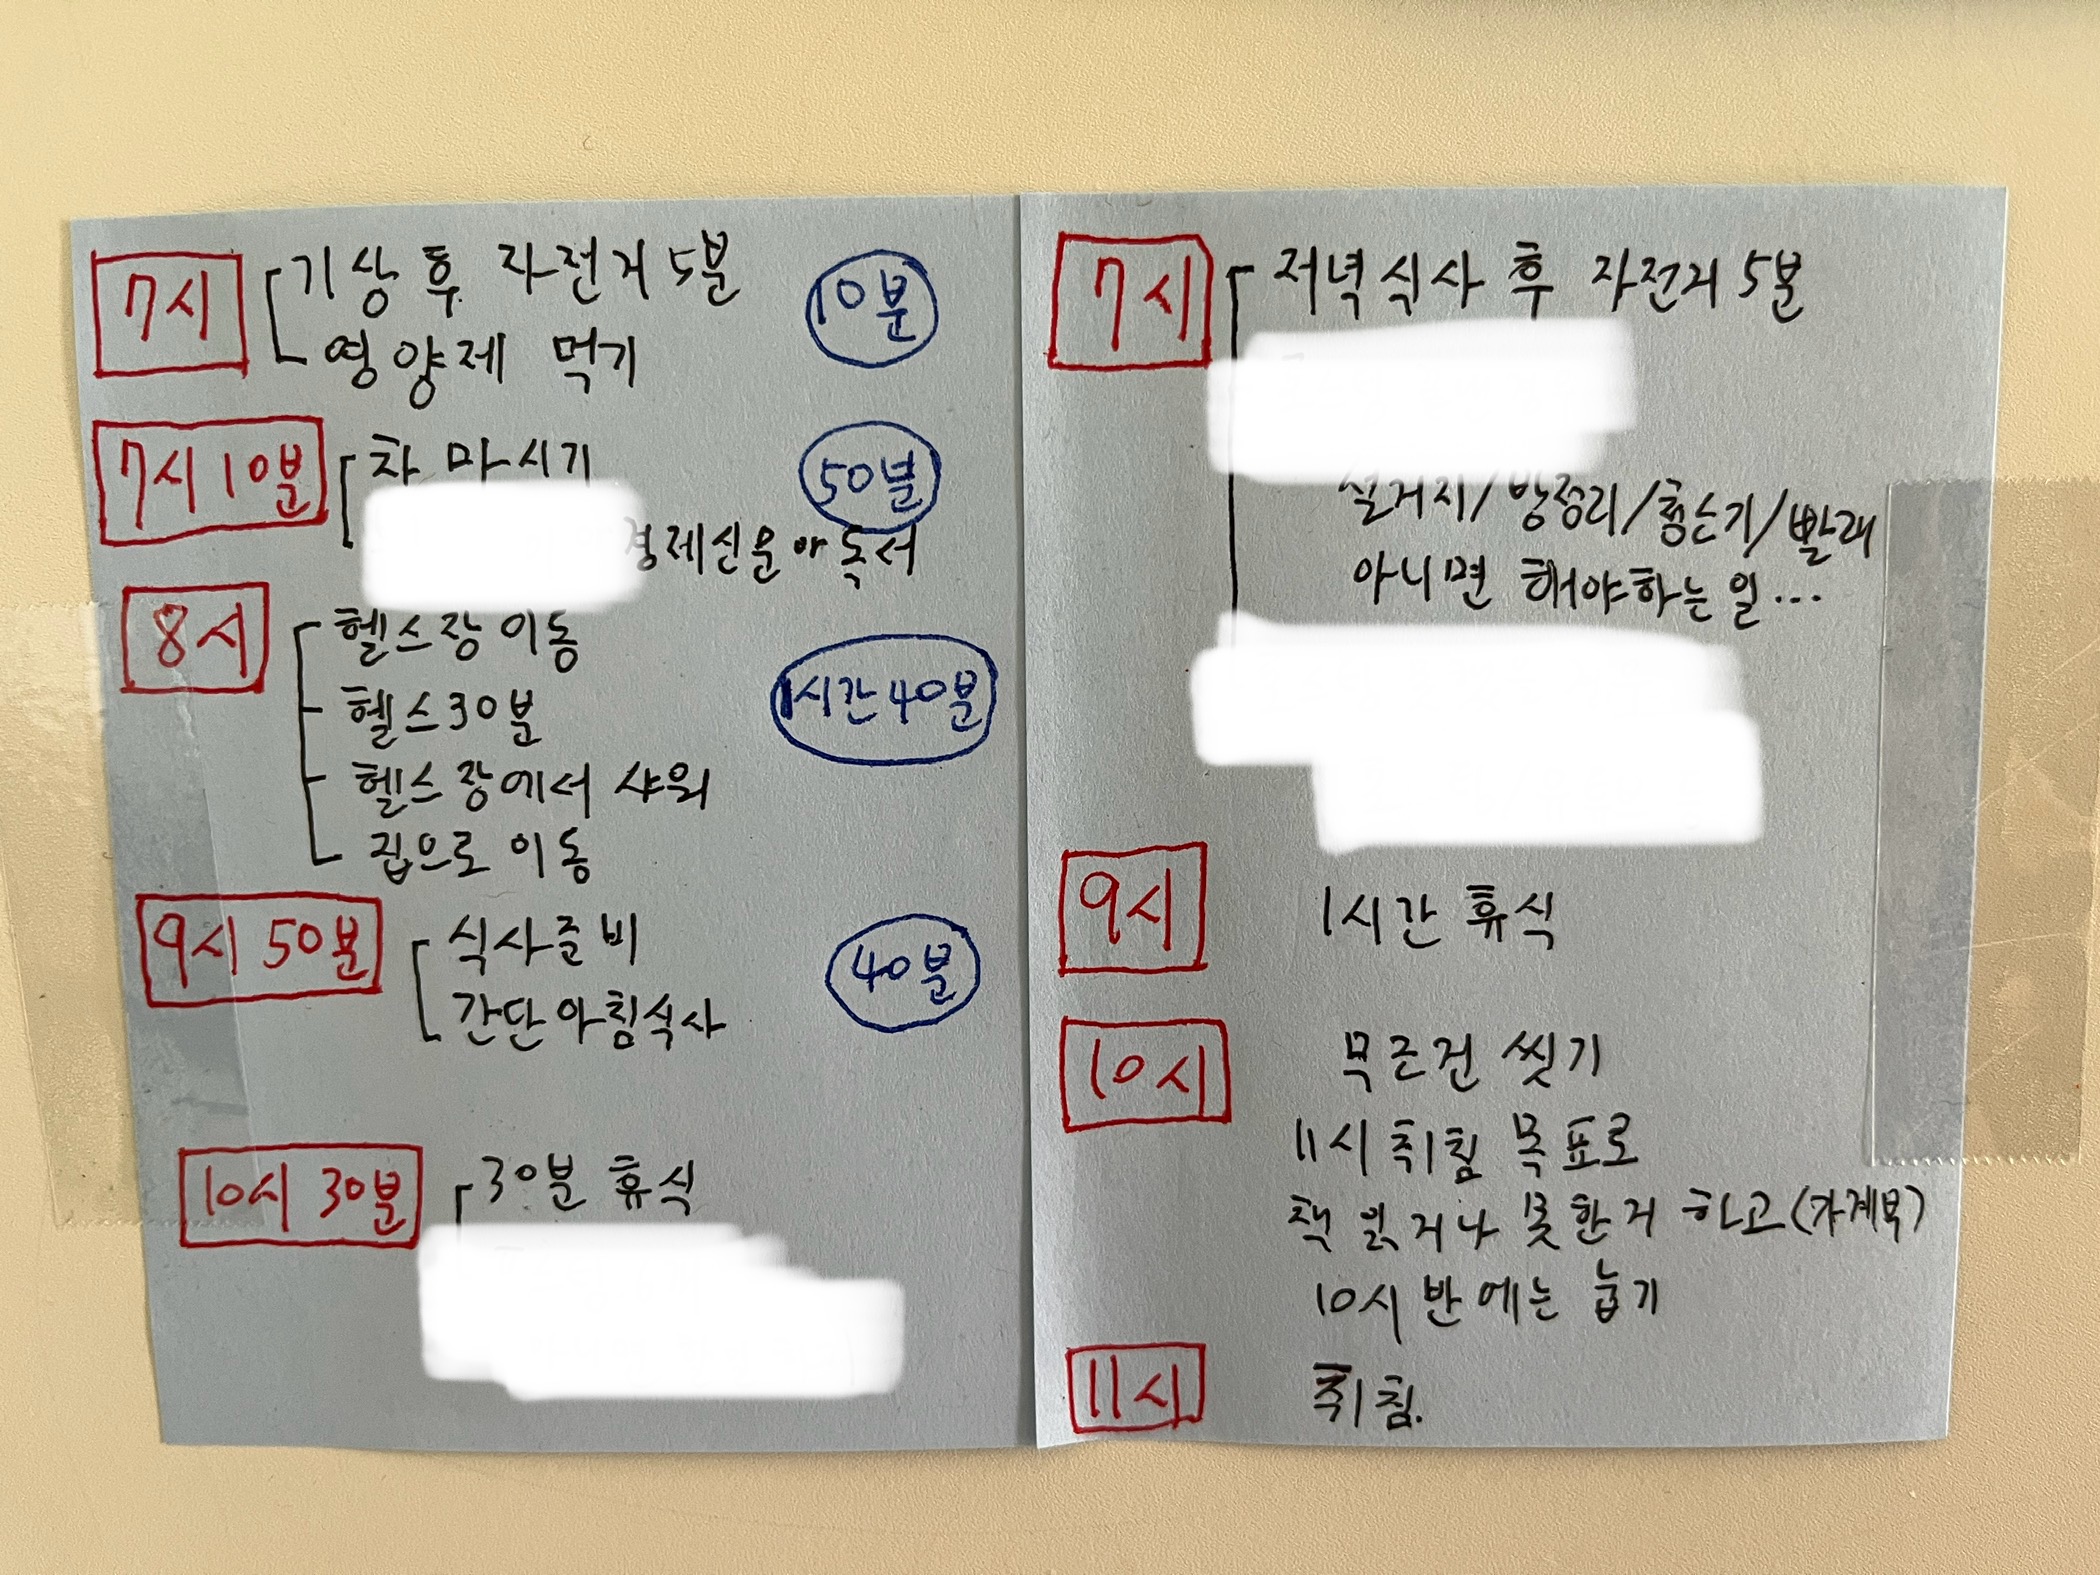 7시 기상 후 자전거 5분 10분
영양제 먹기
7시 10분 차 마시기 50분
경제신문 or 독서
8시 헬스장 이동
헬스 30분 1시간 40분
헬스장에서 샤워
집으로 이동
9시 50분 식사준비 40분
간단 아침식사
10시 30분 30분 휴식
7시 저녁식사 후 자전거 5분
설거지/방정리/청소기/빨래
아니면 해야하는 일...
9시 1시간 휴식
10시 무조건 씻기
11시 취침 목표로
책 읽거나 못한거 하고 (가계부)
10시 반에는 눕기
11시 취침.